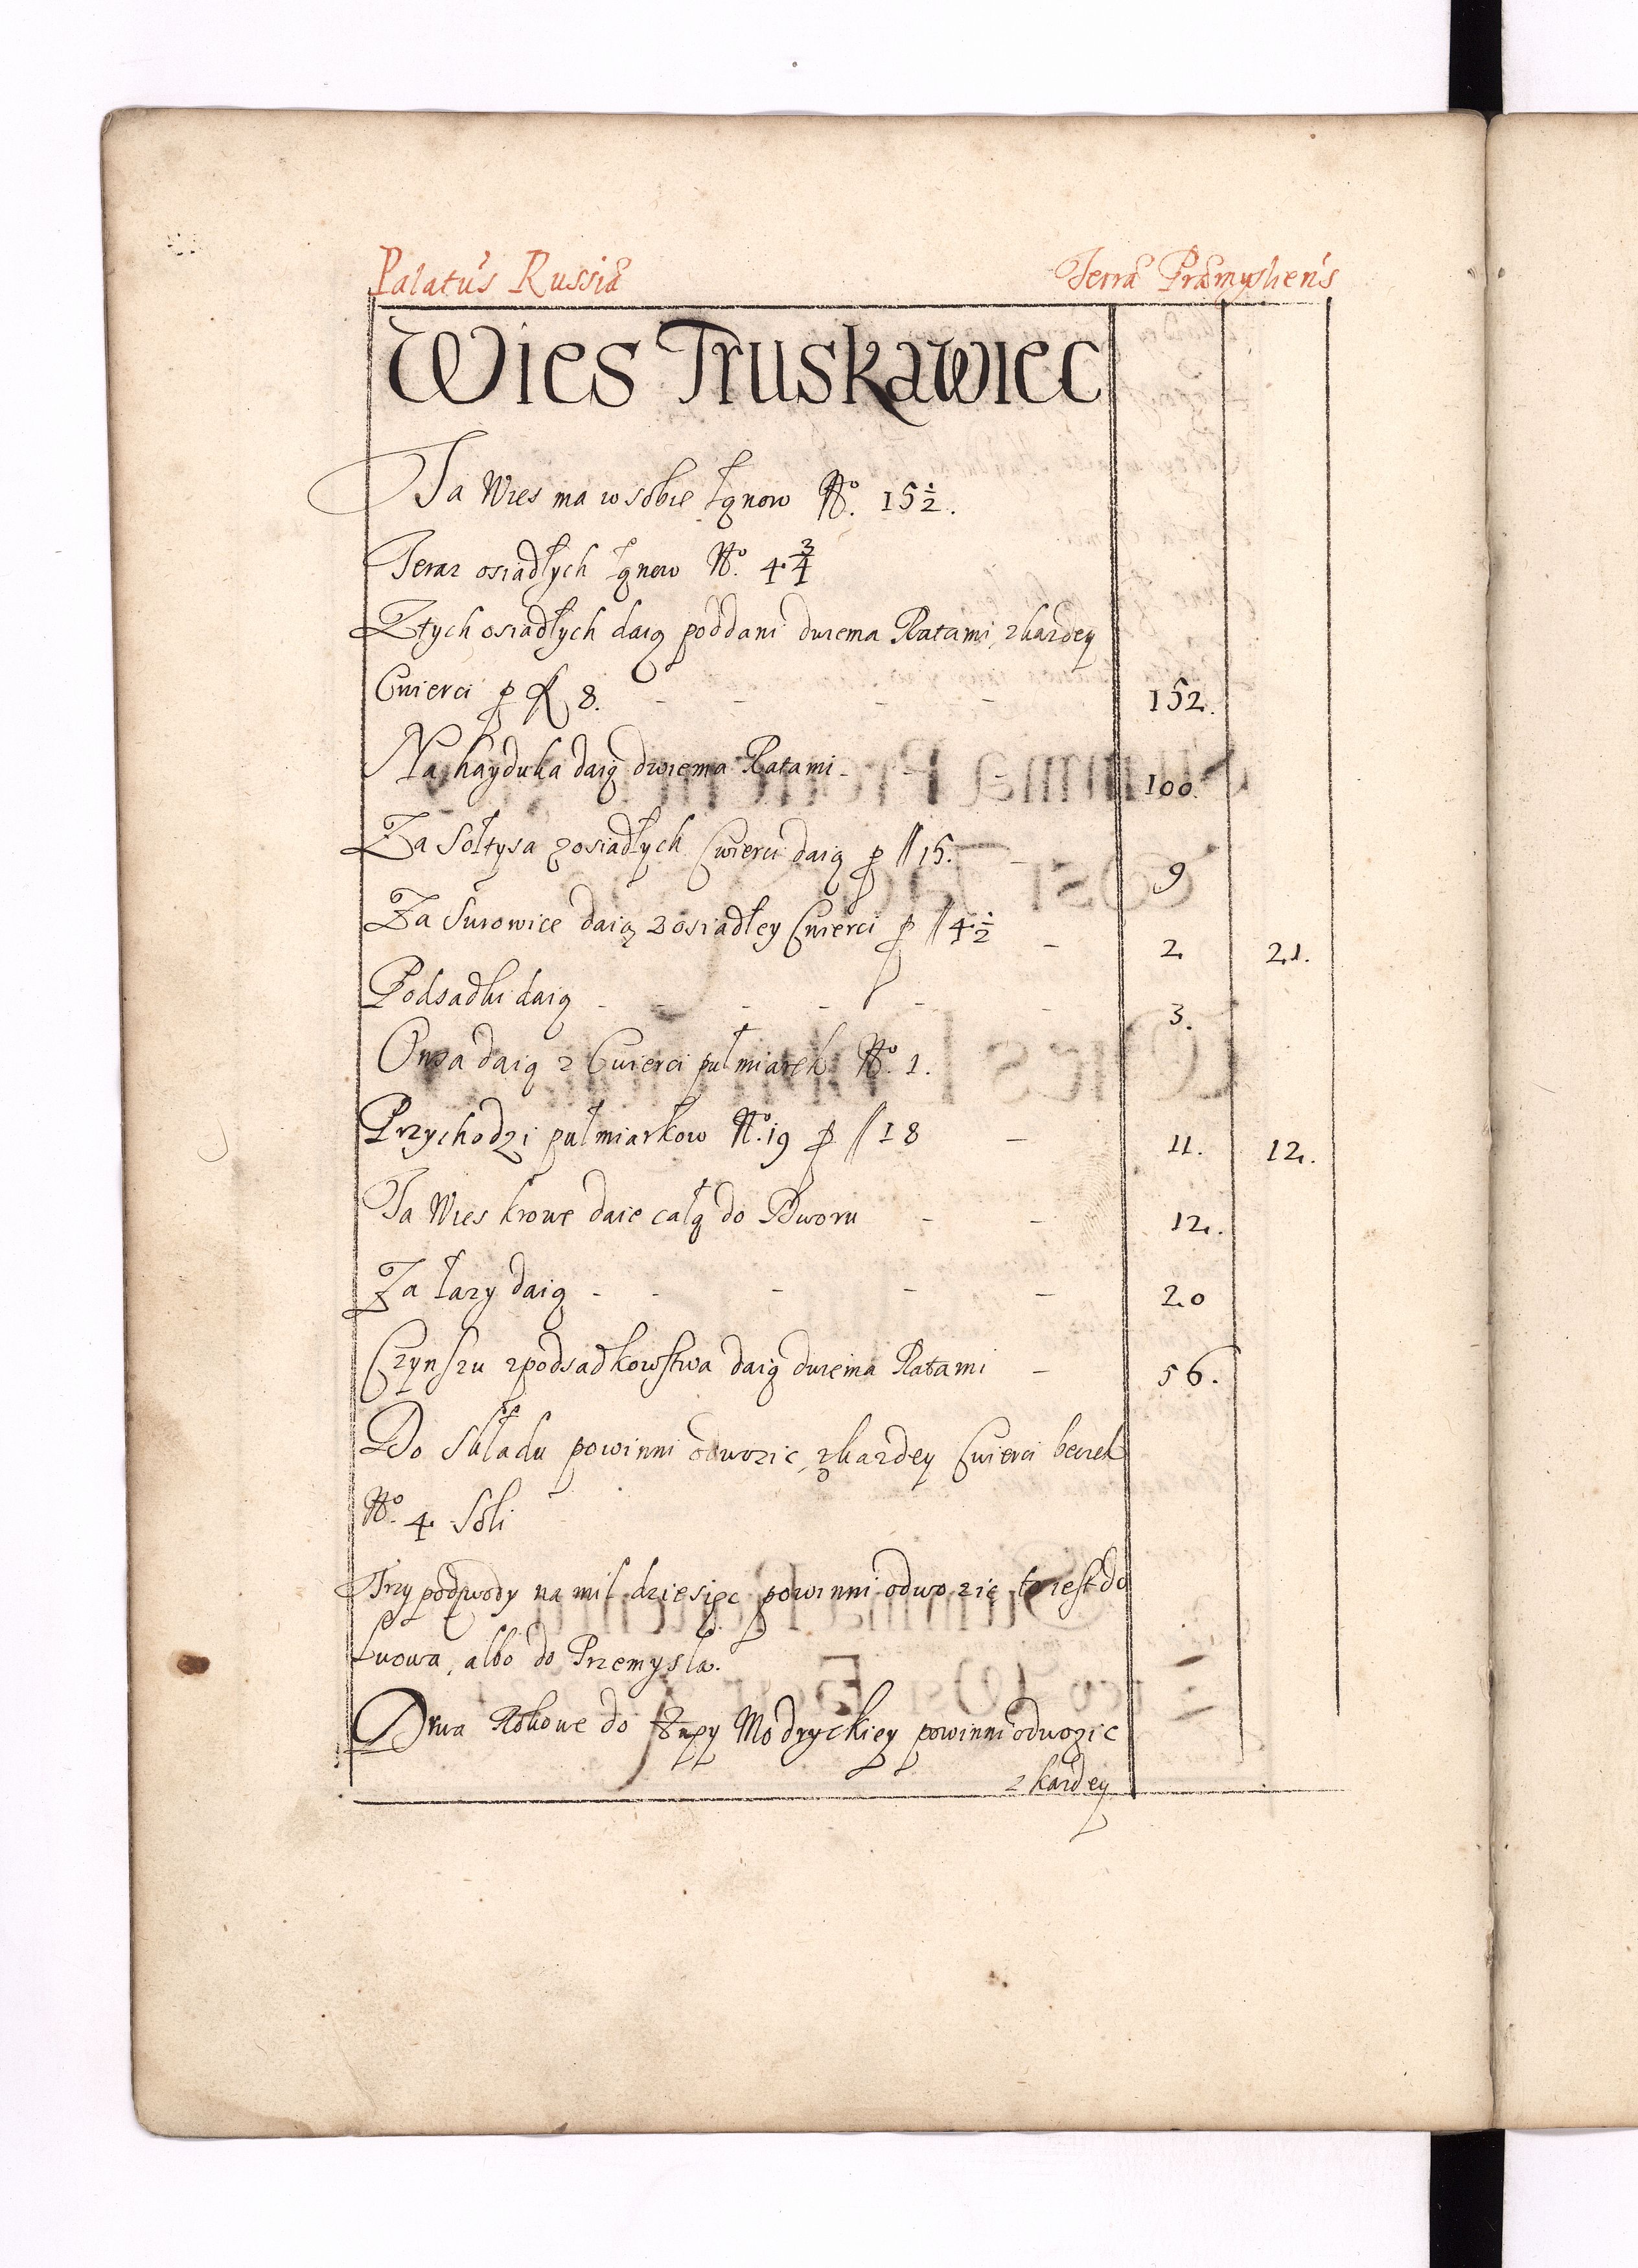 Palatus Russiæ Terræ Præmysliens
Wies Truskawiec
Ta Wies ma w sobie łąnow No. 15 1/2.
Teraz osiadłych łąnow No. 4 3/4
Z tych osiadłych daią poddani dwiema Ratami, z kazdey
Cwierci p fl 8. - - - - 152.
Na hayduka daią dwiema Ratami - - 100.
Za Sołtysa z osiadłych Cwierci daią p // 15. - 9
Za Surowice daią z osiadłey Cwierci p // 4 1/2 - 2 21.
Podsadki daią - - - - - - 3.
Owsa daią z Cwierci puł miarek No. 1.
Przychodzi puł miarkow No. 19 p // 18 - 11. 12.
Ta Wies krowe daie całą do Dworu - - 12.
Za łazy daią - - - - - 20
Czynszu z podsadkowstwa daią dwiema Ratami - 56.
Do Składu powinni odwozic, z kazdey Cwierci beczek
No. 4 Soli
Trzy podwody na mil dziesięc powinni odwozic to iest do
Lwowa, albo do Przemysla.
Drwa Rokowe do Zupy Modryckiey powinni odwozic
z kazdey